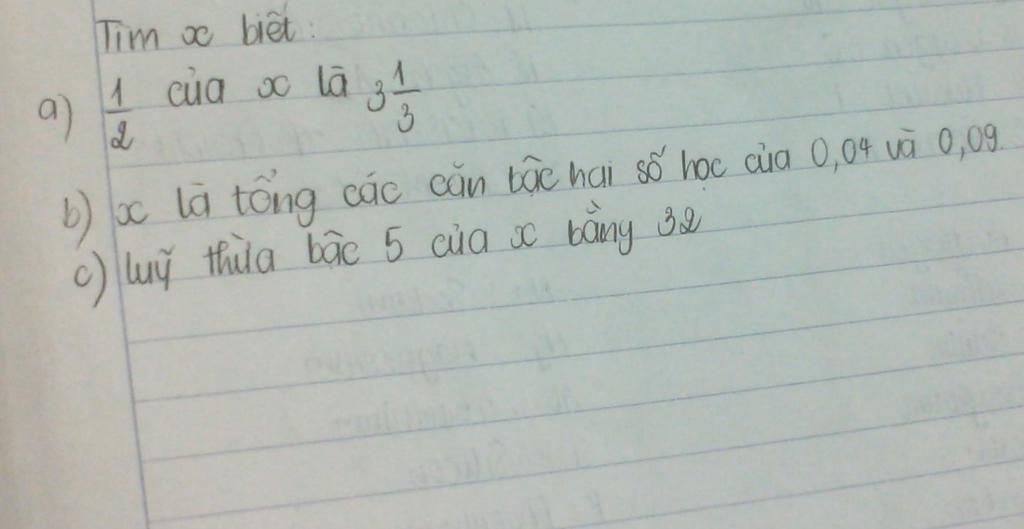 Tìm x biết:
a) 1/2 của x là 3 1/3
b) x là tổng các căn bậc hai số học của 0,04 và 0,09
c) luỹ thừa bậc 5 của x bằng 32